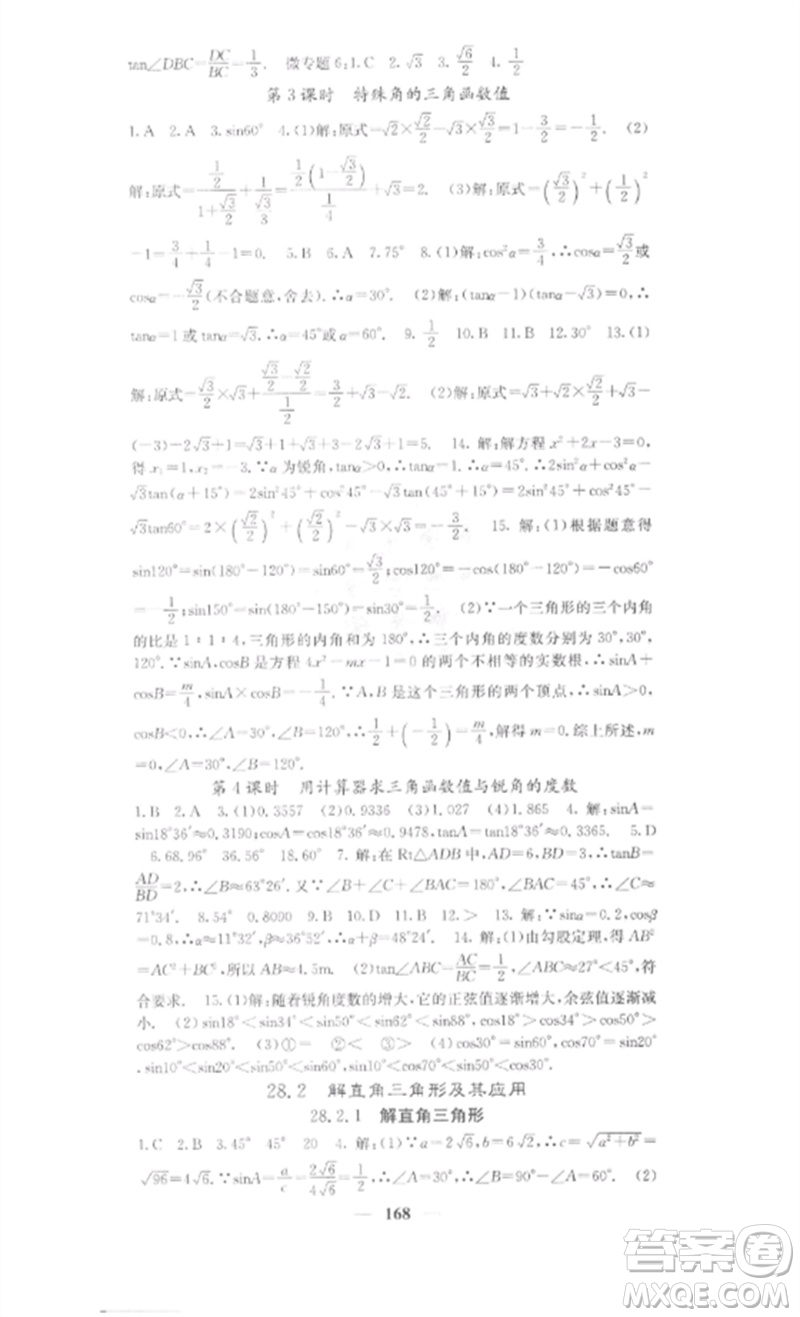 tan∠DBC=DC/BC=1/3. 微专题6:1.C 2.√3 3.√6/2 4.1/2
第3课时 特殊角的三角函数值
1.A 2.A 3.sin60° 4.(1)解:原式=√2×√2/2-√3×√3/2=1-3/2=-1/2. (2)
解:原式=(1/2)/(1+√3/2)+1/(√3/3)=(1/2(1-√3/2))/(1/4)+√3=2. (3)解:原式=(√3/2)²+(1/2)²
-1=3/4+1/4-1=0. 5.B 6.A 7.75° 8.(1)解:cos²α=3/4,∴cosα=√3/2或
cosα=-√3/2(不合题意,舍去).∴α=30°. (2)解:(tanα-1)(tanα-√3)=0,∴
tanα=1或tanα=√3.∴α=45°或α=60°. 9.1/2 10.B 11.B 12.30° 13.(1)
解:原式=√3/2×√3+(√3/2-√2/2)/(1/2)=3/2+√3-√2. (2)解:原式=√3+√2×√2/2+√3-
(-3)-2√3+1=√3+1+√3+3-2√3+1=5. 14.解:解方程x²+2x-3=0,
得x₁=1,x₂=-3.∵α为锐角,tanα>0,∴tanα=1.∴α=45°.∴2sin²α+cos²α-
√3tan(α+15°)=2sin²45°+cos²45°-√3tan(45°+15°)=2sin²45°+cos²45°-
√3tan60°=2×(√2/2)²+(√2/2)²-√3×√3=-3/2. 15.解:(1)根据题意得
sin120°=sin(180°-120°)=sin60°=√3/2;cos120°=-cos(180°-120°)=-cos60°=
-1/2;sin150°=sin(180°-150°)=sin30°=1/2. (2)∵一个三角形的三个内角
的比是1∶1∶4,三角形的内角和为180°,∴三个内角的度数分别为30°,30°,
120°.∵sinA,cosB是方程4x²-mx-1=0的两个不相等的实数根,∴sinA+
cosB=m/4,sinA·cosB=-1/4.∵A,B是这个三角形的两个顶点,∴sinA>0,
cosB<0,∴∠A=30°,∠B=120°,∴1/2+(-1/2)=m/4,解得m=0.综上所述,m=0,
∠A=30°,∠B=120°.
第4课时 用计算器求三角函数值与锐角的度数
1.B 2.A 3.(1)0.3557 (2)0.9336 (3)1.027 (4)1.865 4.解:sinA=
sin18°36′≈0.3190;cosA=cos18°36′≈0.9478,tanA=tan18°36′≈0.3365. 5.D
6.68.96° 36.56° 18.60° 7.解:在Rt△ADB中,AD=6,BD=3,∴tanB=
AD/BD=2,∴∠B≈63°26′.又∵∠BAC+∠B+∠C=180°,∠C=45°,∴∠BAC≈
71°34′. 8.54° 0.8000 9.B 10.D 11.C 12.> 13.解:∵sinα=0.2,cosβ
=0.8,∴α≈11°32′,β≈36°52′.∴α+β≈48°24′. 14.解:(1)由勾股定理,得AB²
=AC²+BC²,所以AB≈4.5m. (2)tan∠ABC=AC/BC=1/2,∠ABC≈27°<45°,符
合要求. 15.(1)解:随着锐角度数的增大,它的正弦值逐渐增大,余弦值逐渐减
小. (2)sin18°<sin34°<sin50°<sin62°<sin88°,cos18°>cos34°>cos50°>
cos62°>cos88°. (3)①= ②< ③> (4)cos30°>sin50°>cos50°>sin30°
28.2 解直角三角形及其应用
28.2.1 解直角三角形
1.C 2.B 3.45° 45° 20 4.解:(1)∵a=2√6,b=6√2,∴c=√(a²+b²)=
√96=4√6.∵sinA=a/c=2√6/4√6=1/2,∴∠A=30°,∴∠B=90°-∠A=60°. (2)
— 168 —
答案圈
MXQE.COM